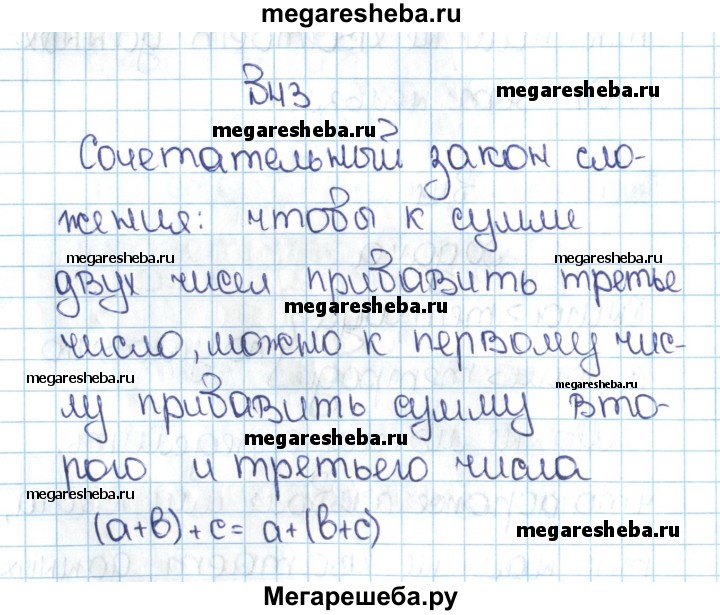 megaresheba.ru
В43
megaresheba.ru
megaresheba.ru
Сочетательный закон сло-
жения: чтобы к сумме
megaresheba.ru
megaresheba.ru
двух чисел прибавить третье
megaresheba.ru
число, можно к первому чис-
megaresheba.ru
megaresheba.ru
лу прибавить сумму вто-
megaresheba.ru
megaresheba.ru
рого и третьего числа
megaresheba.ru
(a+b)+c= a+(b+c)
megaresheba.ru
Мегарешеба.ру